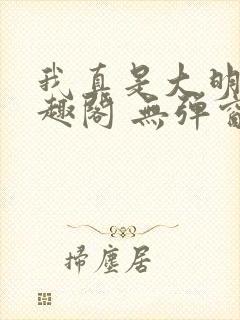 我真是大明
趣閣 無彈窗
掃塵居